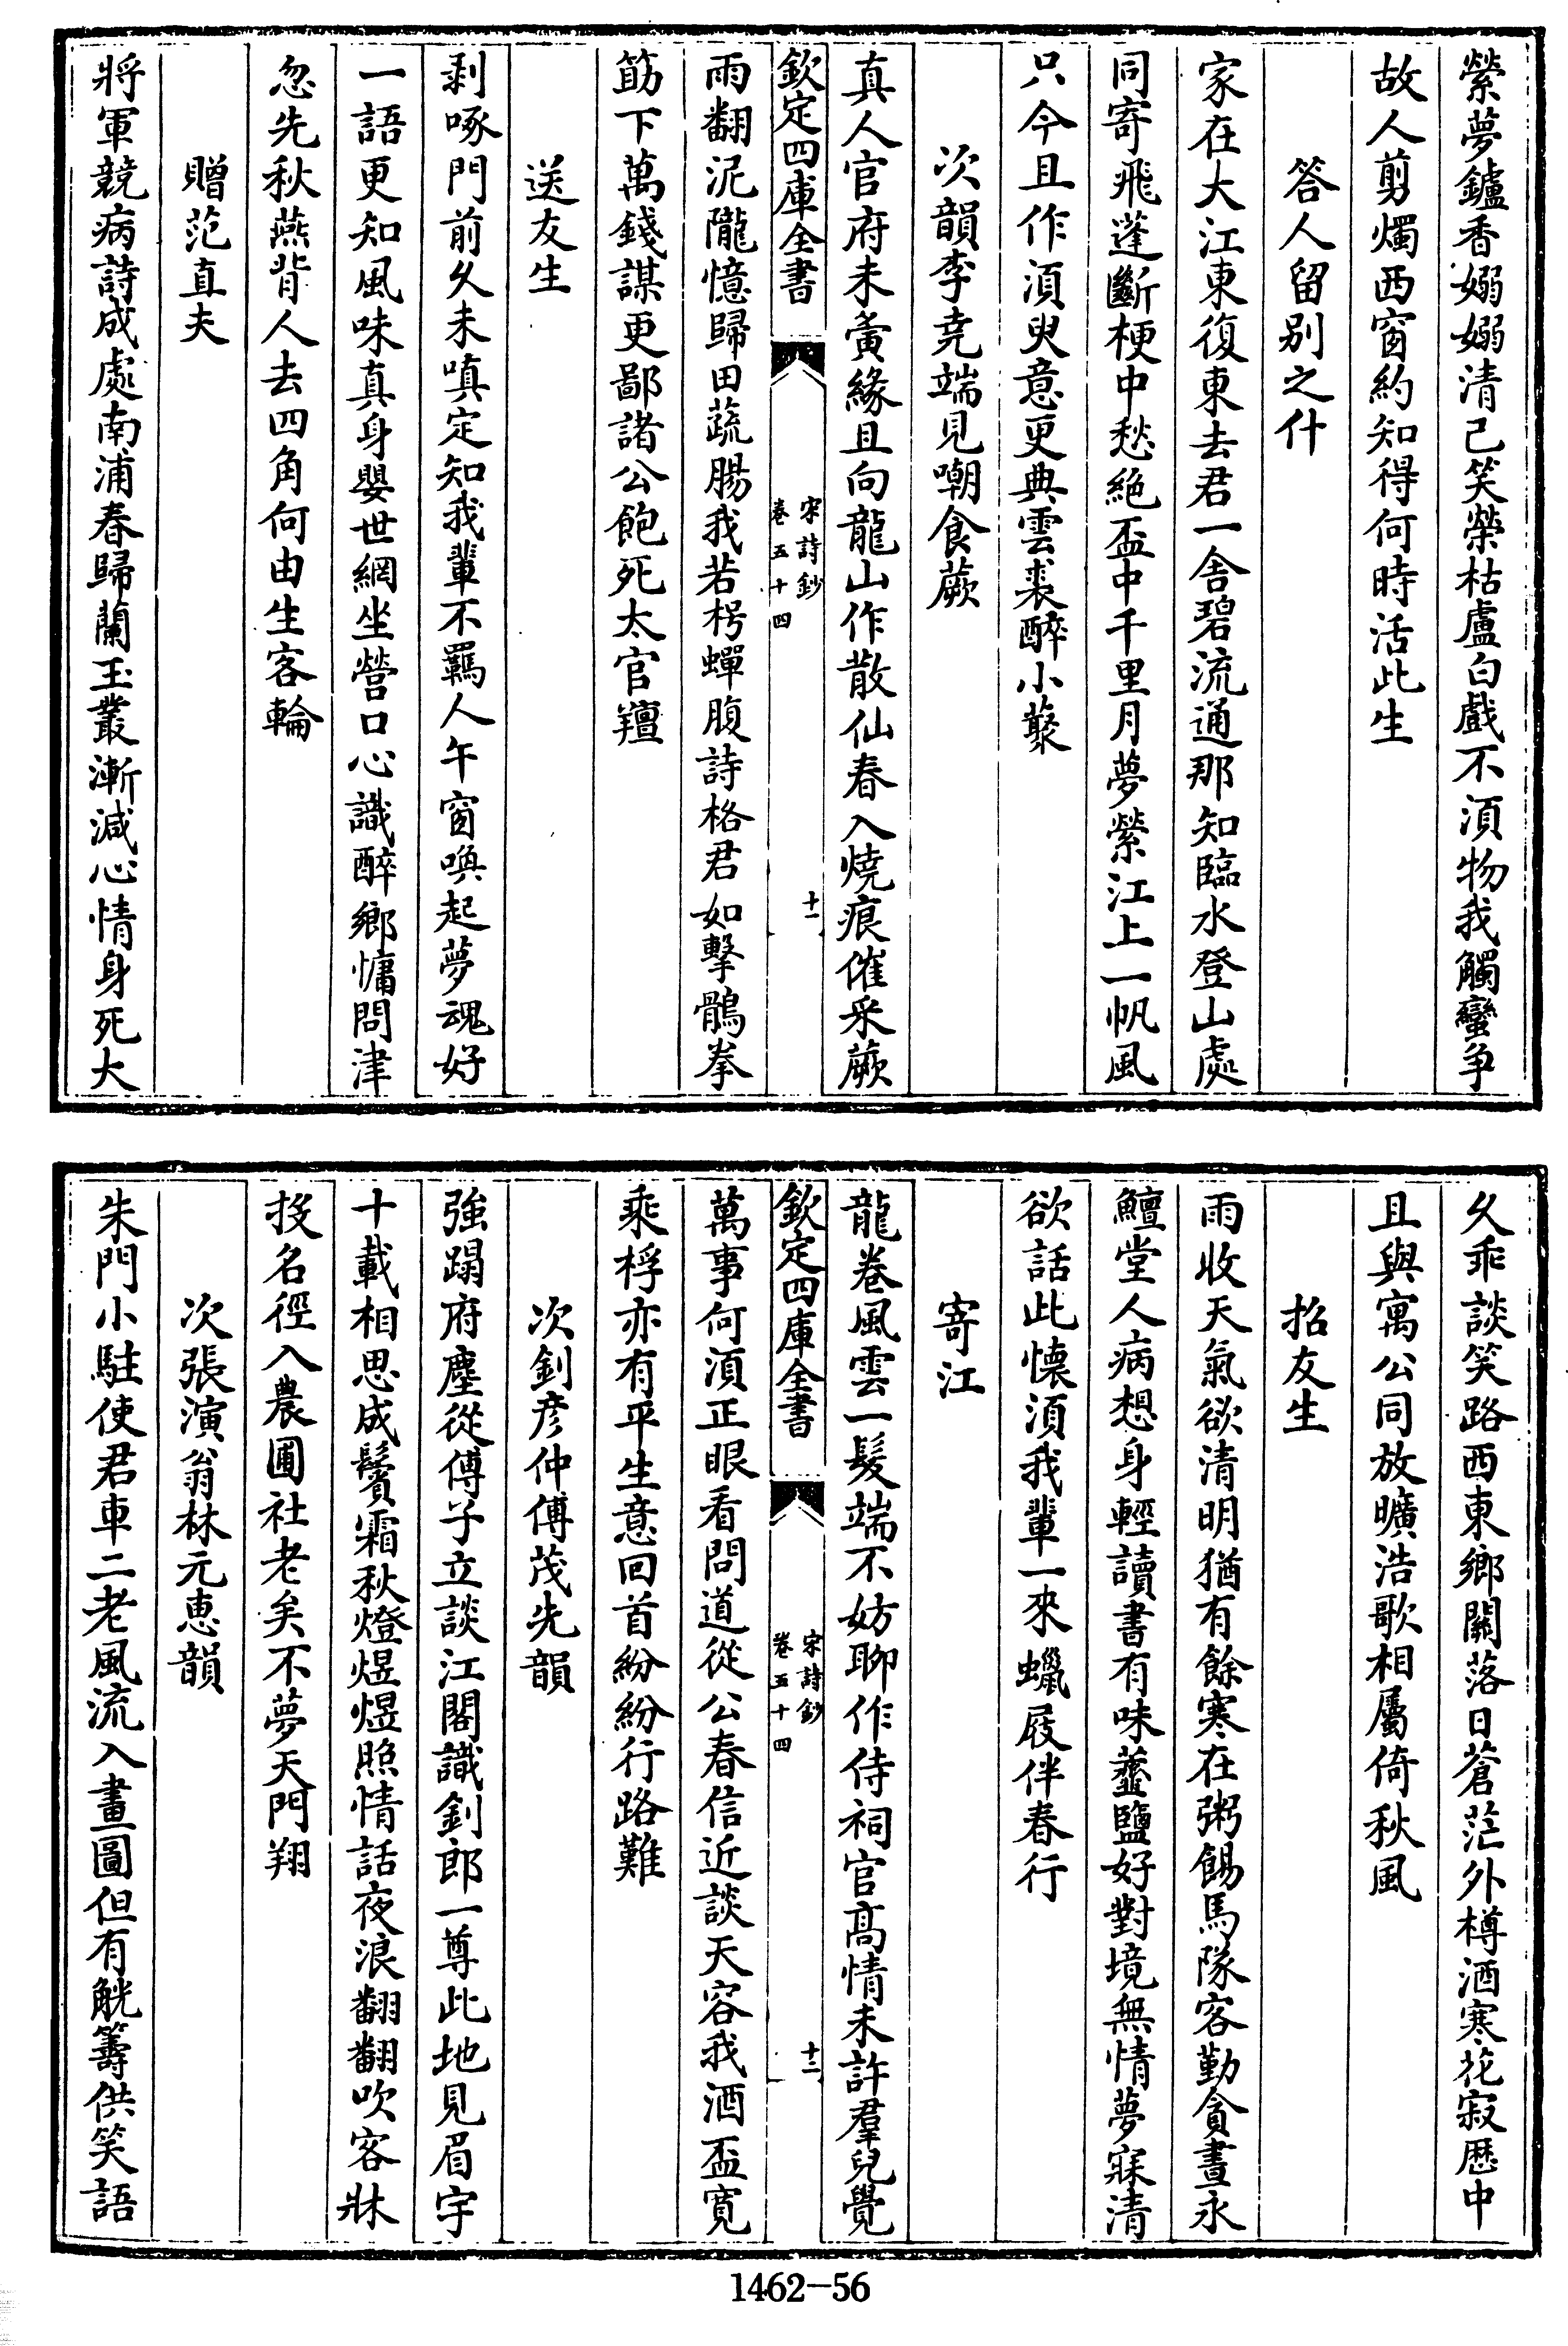 縈夢鑪香嫋嫋清已笑榮枯盧白戲不須物我觸蠻爭
故人剪燭西窗約知得何時活此生
答人留别之什
家在大江東復東去君一舍碧流通那知臨水登山處
同寄飛蓬斷梗中愁絶盃中千里月夢縈江上一帆風
只今且作須臾意更典雲裘醉小蕞
次韻李堯端見嘲食蕨
真人官府未夤緣且向龍山作散仙春入燒痕催采蕨
欽定四庫全書
宋詩鈔
卷五十四
十一
雨翻泥隴憶歸田蔬腸我若枵蟬腹詩格君如擊鶻拳
筯下萬錢謀更鄙諸公飽死太官羶
送友生
剥啄門前久未嗔定知我輩不羈人午窗喚起夢魂好
一語更知風味真身嬰世網坐營口心識醉鄉慵問津
忽先秋燕背人去四角何由生客輪
贈范直夫
將軍競病詩成處南浦春歸蘭玉叢漸減心情身死大
久乖談笑路西東鄉關落日蒼茫外樽酒寒花寂歴中
且與寓公同放曠浩歌相屬倚秋風
招友生
雨收天氣欲清明猶有餘寒在粥餳馬隊客勤貪晝永
鱣堂人病想身輕讀書有味虀鹽好對境無情夢寐清
欲話此懐須我輩一來蠟屐伴春行
寄江
龍卷風雲一髮端不妨聊作侍祠官髙情未許羣兒覺
欽定四庫全書
宋詩鈔
卷五十四
十二
萬事何須正眼看問道從公春信近談天容我酒盃寛
乘桴亦有平生意回首紛紛行路難
次釗彦仲傅茂先韻
強蹋府塵從傅子立談江閣識釗郎一尊此地見眉宇
十載相思成鬢霜秋燈煜煜照情話夜浪翻翻吹客牀
投名徑入農圃社老矣不夢天門翔
次張演翁林元惠韻
朱門小駐使君車二老風流入畫圖但有觥籌供笑語
1462-56